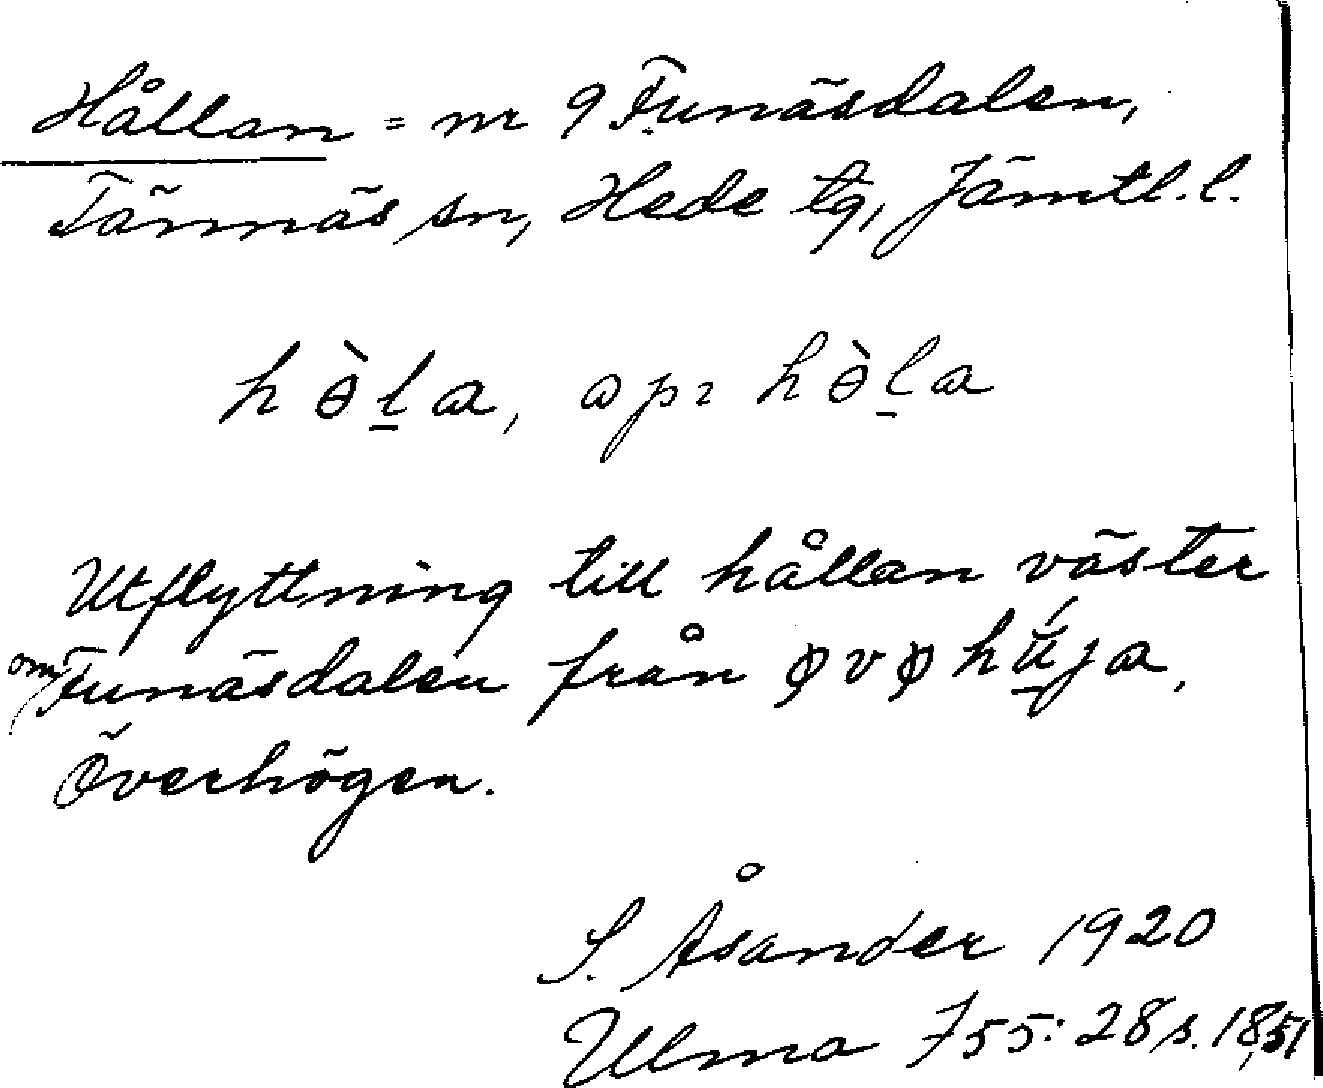 Hållan = nr 9 Funäsdalen,
Tännäs sn, Hede tg, Jämtl. l.
hɵ̀l̲a, ap: hɵ̀l̲a
Utflyttning till hållan väster
om Funäsdalen från
Överhögen.
S. Åsander 1920
Ulma 755:28 s. 18, 51